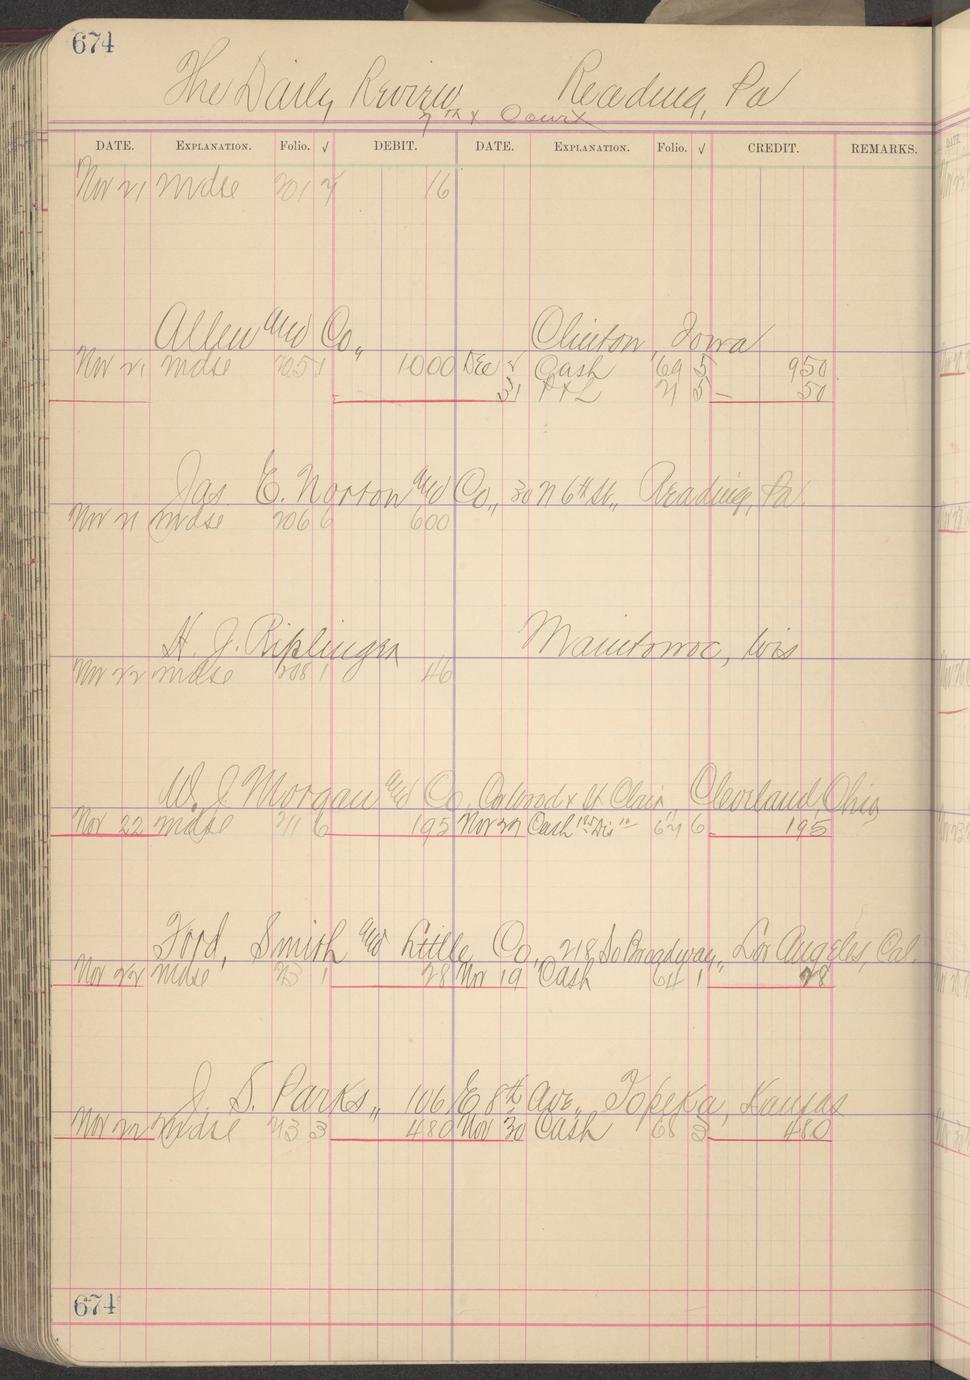 674
The Daily Review Reading, Pa
7th & Court
DATE. EXPLANATION. Folio. √ DEBIT. DATE. EXPLANATION. Folio. √ CREDIT. REMARKS.
Nov 21 Mdse 201 16
Allen and Co., Clinton, Iowa
Nov 21 Mdse 205 1 1000 Dec Cash 69 5 950
31 P & L 71 5 50
Jas E. Norton and Co., 30 N 6th St., Reading, Pa.
Nov 21 Mdse 206 6 600
H. J. Riplinger Manitowoc, Wis
Nov 22 Mdse 208 1 46
W. J. Morgan and Co., Cor Wood & St Clair, Cleveland, Ohio
Nov 22 Mdse 211 6 195 Nov 27 Cash 67 6 195
Ford, Smith and Little Co., 218 So Broadway, Los Angeles, Cal.
Nov 22 Mdse 213 1 28 Nov 19 Cash 64 1 28
J. S. Parks, 106 E 8th Ave., Topeka, Kansas
Nov 22 Mdse 213 3 480 Nov 30 Cash 68 3 480
674